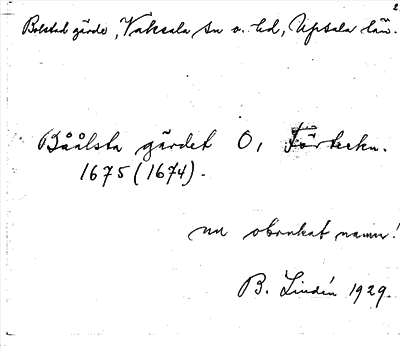 2
Bolstad gärde, Vaksala sn o. hd, Upsala län.
Båålsta gärdet O, Förteckn.
1675 (1674).
nu obrukat namn!
B. Lindén 1929.